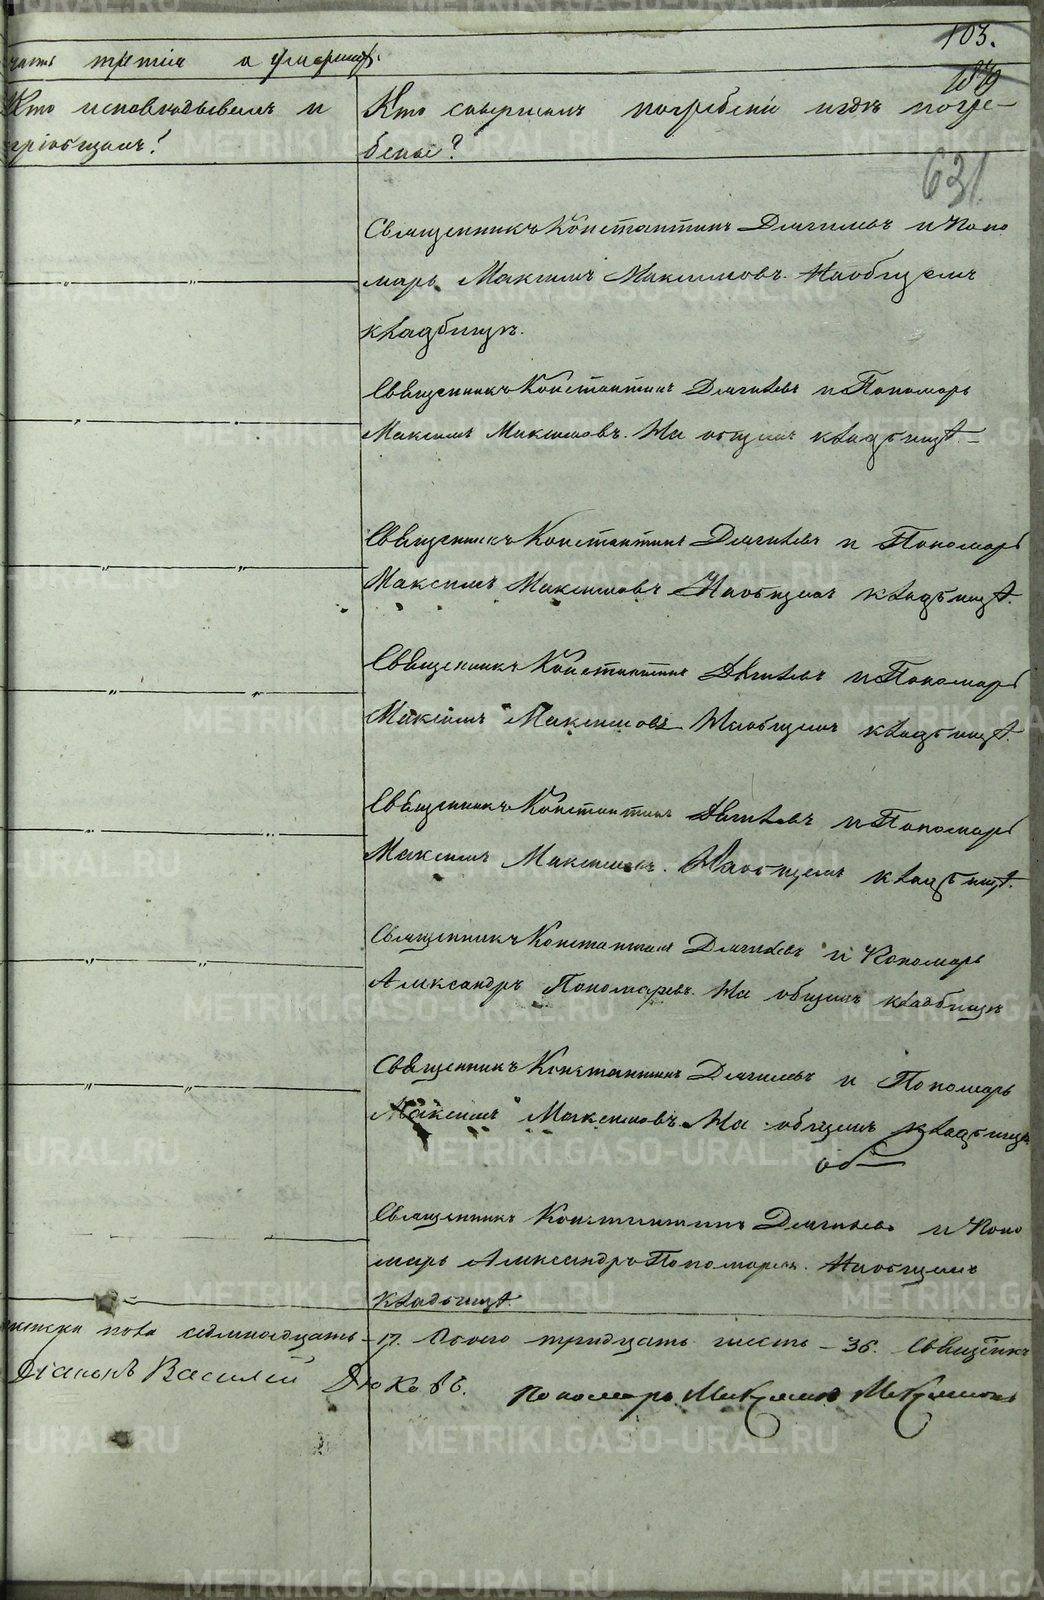 103.
часть третія о умершихъ.
Кто исповѣдывалъ и
пріобщалъ?
Кто совершалъ погребеніе и гдѣ погре-
бены?
631
Священникъ Константинъ и Поно
марь Максимъ Максимовъ. На общемъ
кладбищѣ.
Священникъ Константинъ и Пономарь
Максимъ Максимовъ. На общемъ кладбищѣ.
Священникъ Константинъ и Пономарь
Максимъ Максимовъ На общемъ кладбищѣ.
Священникъ Константинъ и Пономарь
Максимъ Максимовъ На общемъ кладбищѣ.
Священникъ Константинъ и Пономарь
Максимъ Максимовъ. На общемъ кладбищѣ.
Священникъ Константинъ и Пономарь
Александръ Пономаревъ. На общемъ кладбищѣ
Священникъ Константинъ и Пономарь
Максимъ Максимовъ. На общемъ кладбищѣ
Священникъ Константинъ и Поно
марь Александръ Пономаревъ. На общемъ
кладбищѣ.
пола семнадцать – 17. Обоего тридцать шесть – 36. Священникъ
Діаконъ Василій Дюковъ. Пономарь Максимъ Максимовъ
METRIKI.GASO-URAL.RU